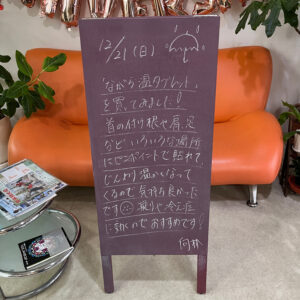 12/21(日)
ながら温タブレット
を買ってみました!
首の付け根や肩、足
など いろいろな場所
にピンポイントで貼れて、
じんわり温かくなって
くるので 気持ち良かった
です 凝りや冷え症
に効くのでおすすめです!